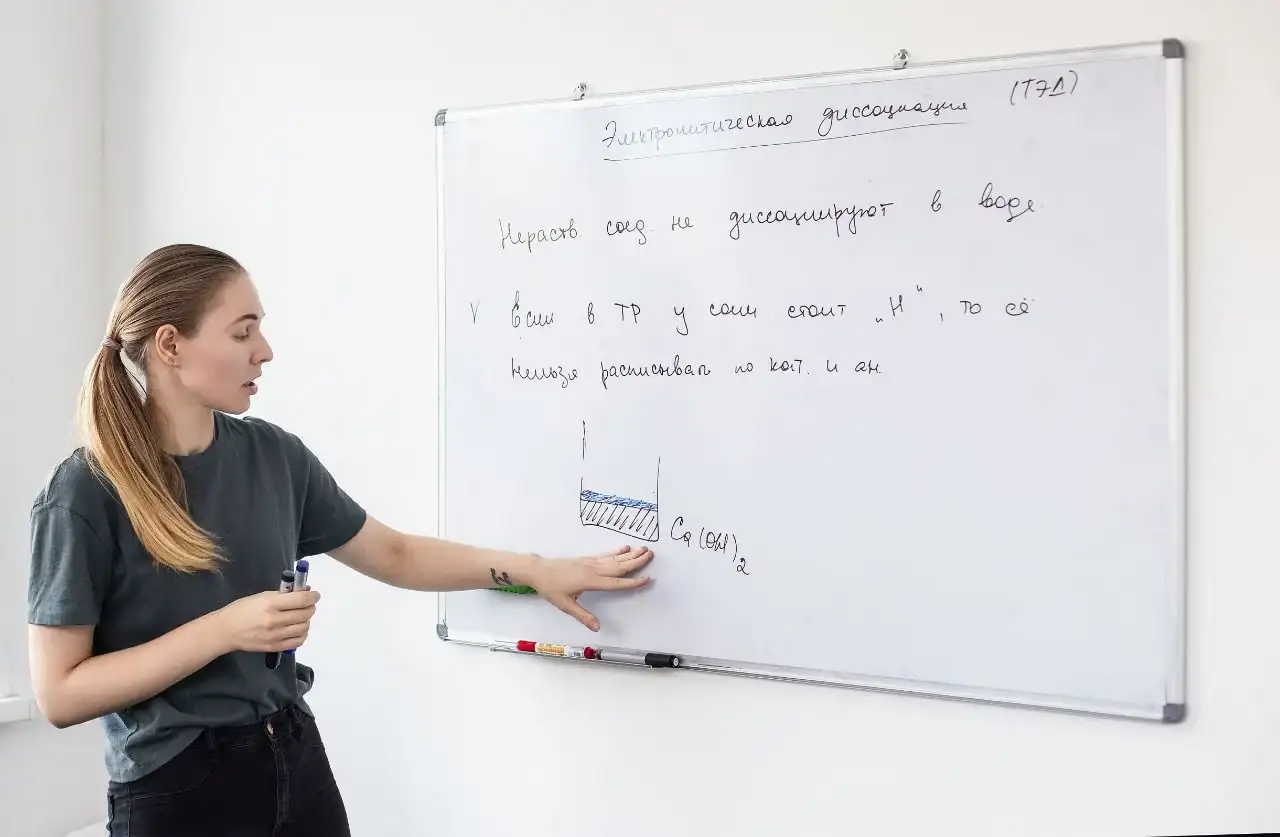 Электролитическая диссоциация (ТЭД)
Нераств. соед. не диссоциируют в воде.
V Если в ТР у соли стоит „Н", то её
нельзя расписывать по кат. и ан.
Ca(OH)2